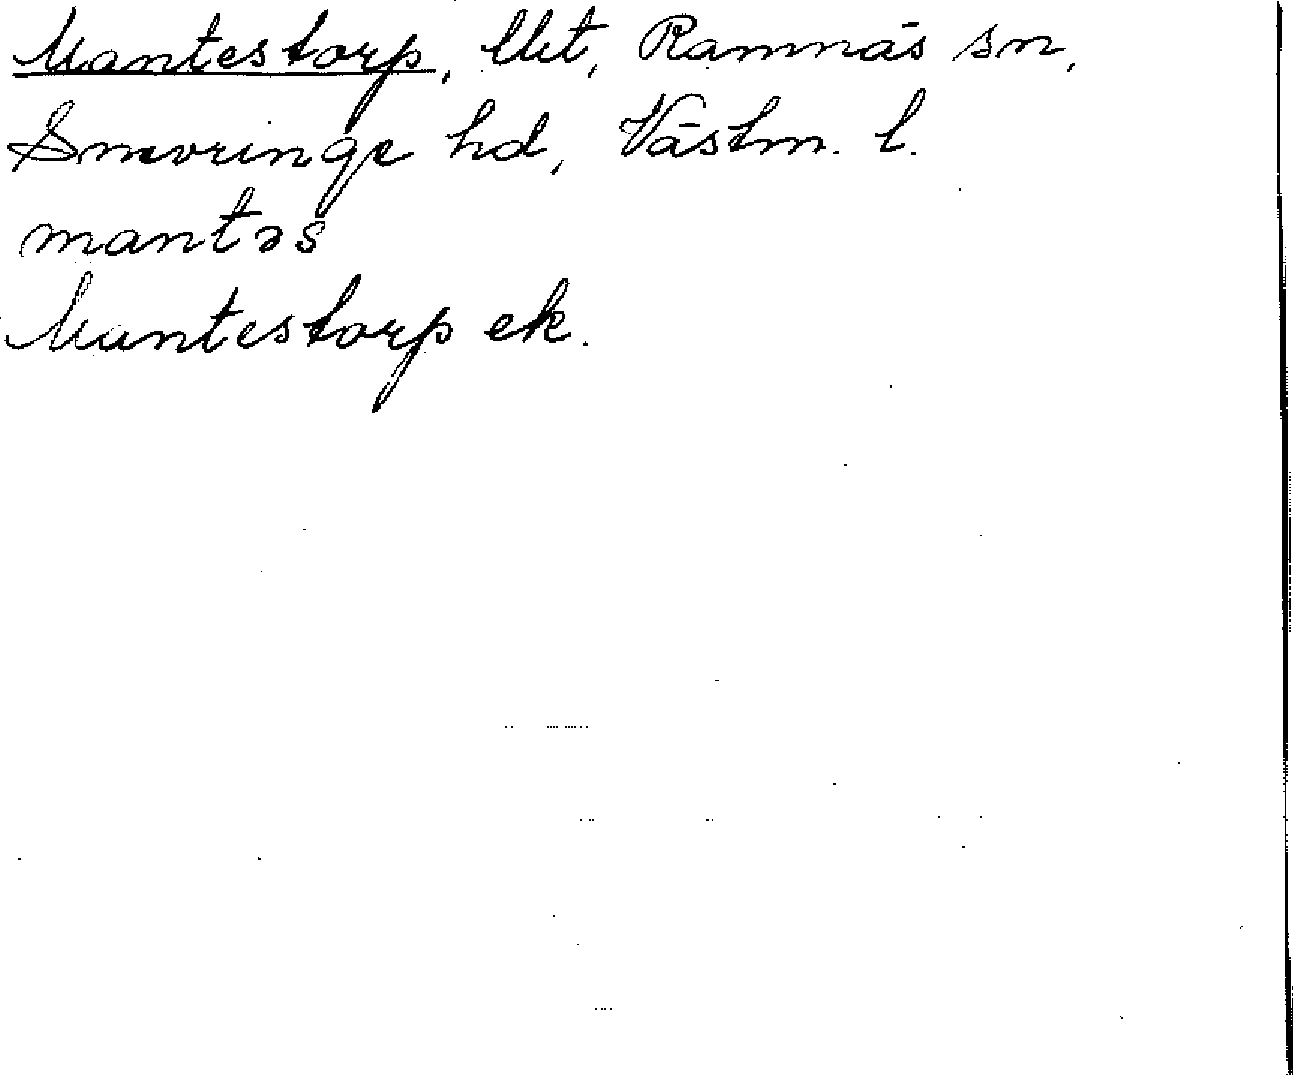 Mantestorp, llht, Ramnäs sn,
Snevringe hd, Västm. l.
mantəs
Mantestorp ek.